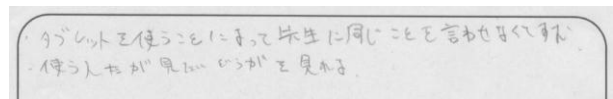 ・タブレットを使うことによって先生に同じことを言わせなくてすむ
・使う人たちが見たいどうがを見れる